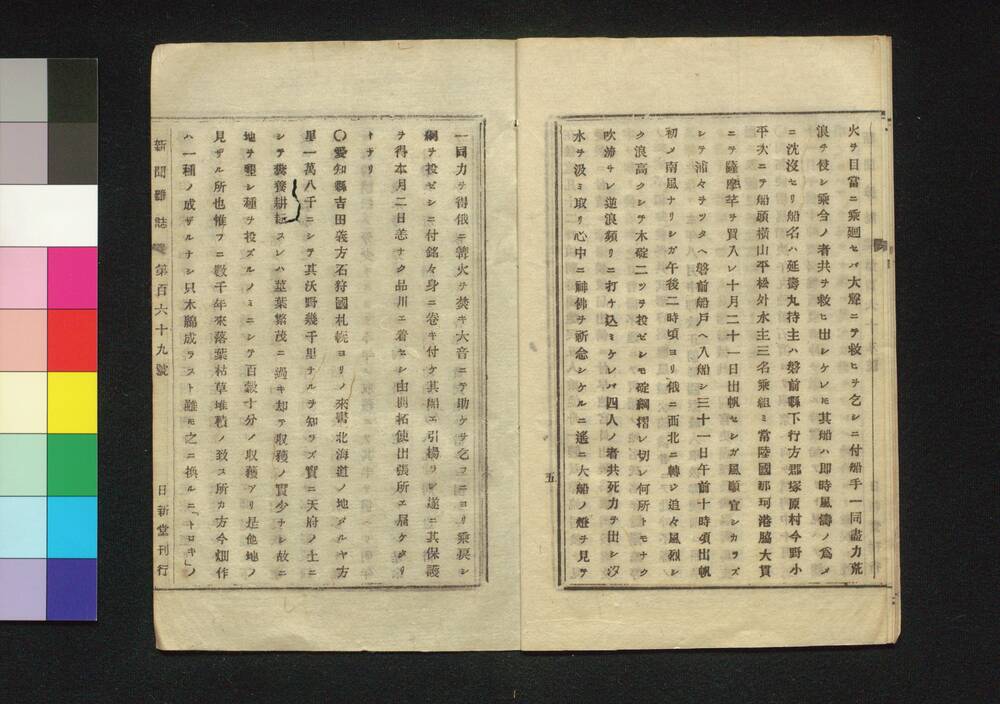 火ヲ目當ニ乘廻セバ大聲ニテ救ヒヲ乞シニ付船手一同盡力荒
浪ヲ侵シ乘合ノ者共ヲ救ヒ出シケレ𪜈其船ハ卽時風濤ノ爲メ
ニ沈沒セリ船名ハ延壽丸持主ハ磐前縣下行方郡塚原村今野小
平次ニテ船頭橫山平松外水主三名乘組ミ常陸國那珂港脇大貫
ニテ薩摩芋ヲ買入レ十月二十一日出帆セシガ風順宜シカラズ
シテ浦々ヲツタヘ磐前船戸ヘ入船シ三十一日午前十時頃出帆
初メ南風ナリシガ午後二時頃ヨリ俄ニ西北ニ轉ジ追々風烈シ
ク浪高クシテ木碇二ツヲ投ゼシモ碇綱摺レ切レ何所トモナク
吹流サレ逆浪頻リニ打ケ込ミケレバ四人ノ者共死力ヲ出シ汐
水ヲ汲ミ取リ心中ニ神佛ヲ祈念シケルニ遙ニ大船ノ燈ヲ見テ
五
一同力ヲ得俄ニ篝火ヲ焚キ大音ニテ助ケヲ乞フニヨリ乘戻シ
綱ヲ投ゼシニ付銘々身ニ卷キ付ケ其船エ引揚リシ遂ニ其保護
ヲ得本月二日恙ナク品川エ着セシ由開拓使出張所エ屆ケタリ
トナリ
〇愛知縣吉田義方石狩國札幌ヨリノ來書北海道ノ地タルヤ方
里一萬八千ニシテ其沃野幾千里ナルヲ知ラズ實ニ天府ノ土ニ
シテ養耕耘スレハ莖葉繁茂ニ過キ却テ收穫ノ實少ナシ故ニ
地ヲ墾シ種ヲ投ズルノミニシテ百穀十分ノ收穫アリ是他地ノ
見ザル所也惟フニ數千年來落葉枯草堆積ノ致ス所カ方今畑作
ハ一種ノ成ザルナシ只木綿成ラスト雖モ之ニ換ルニ「トロキ」ノ
新聞雜誌 第百六十九號 日新堂刊行